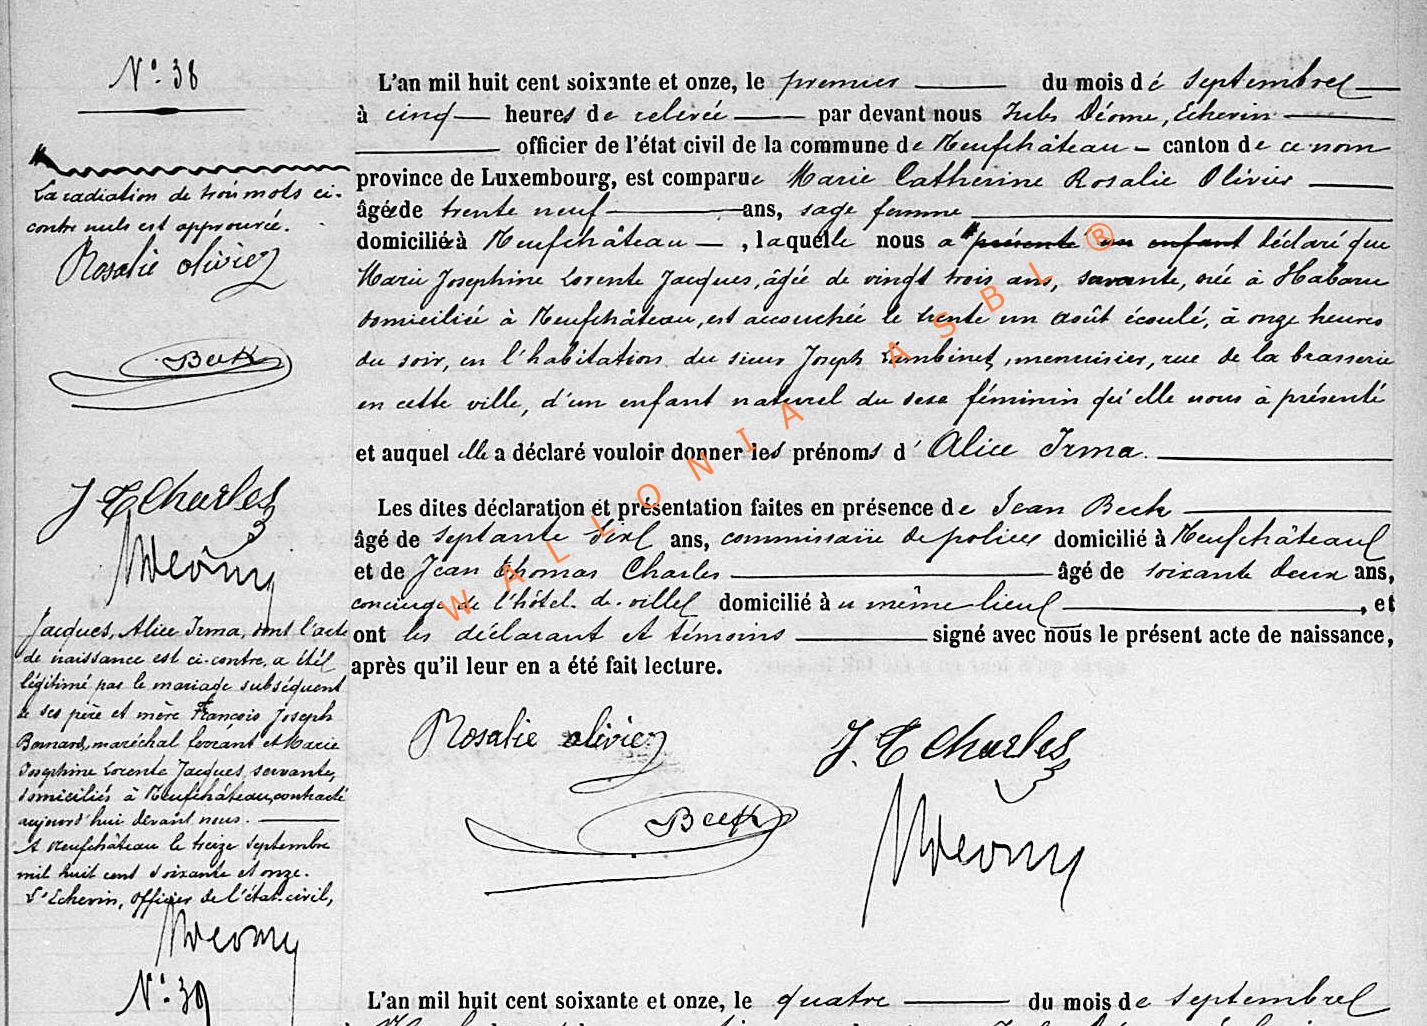 N° 38
L'an mil huit cent soixante et onze, le premier du mois de septembre
à cinq heures de relevée par devant nous Jules Déome, Echevin
officier de l'état civil de la commune de Neufchâteau canton de ce nom
province de Luxembourg, est comparue Marie Catherine Rosalie Olivier
âgée de trente neuf ans, sage femme
domiciliée à Neufchâteau, laquelle nous a présenté un enfant déclaré que
Marie Josephine Lorente Jacques, âgée de vingt trois ans, servante, née à Habaru
domiciliée à Neufchâteau, est accouchée le trente un août écoulé, à onze heures
du soir, en l'habitation du sieur Joseph Lambinet, menuisier, rue de la brasserie
en cette ville, d'un enfant naturel du sexe féminin qu'elle nous à présenté
et auquel elle a déclaré vouloir donner les prénoms d'Alice Irma.
Les dites déclaration et présentation faites en présence de Jean Beck
âgé de septante ans, commissaire de police domicilié à Neufchâteau
et de Jean Thomas Charles âgé de soixante deux ans,
concierge de l'hôtel de ville domicilié à même lieu, et
ont les déclarant et témoins signé avec nous le présent acte de naissance,
après qu'il leur en a été fait lecture.
Rosalie olivier
J. T Charles
Beck
JDeome
La radiation de trois mots ci-
contre nuls est approuvée.
Rosalie olivier
Beck
J T Charles
JDeome
Jacques, Alice Irma, dont l'acte
de naissance est ci-contre, a été
légitimé par le mariage subséquent
de ses père et mère François Joseph
Bernard, maréchal ferrant et Marie
Josephine Lorente Jacques, servante,
domiciliés à Neufchâteau, contracté
aujourd'hui devant nous.
A Neufchâteau le treize septembre
mil huit cent soixante et onze.
L'Echevin, officier de l'état-civil,
JDeome
N° 39
L'an mil huit cent soixante et onze, le quatre du mois de septembre
WALLONIA ASBL ®